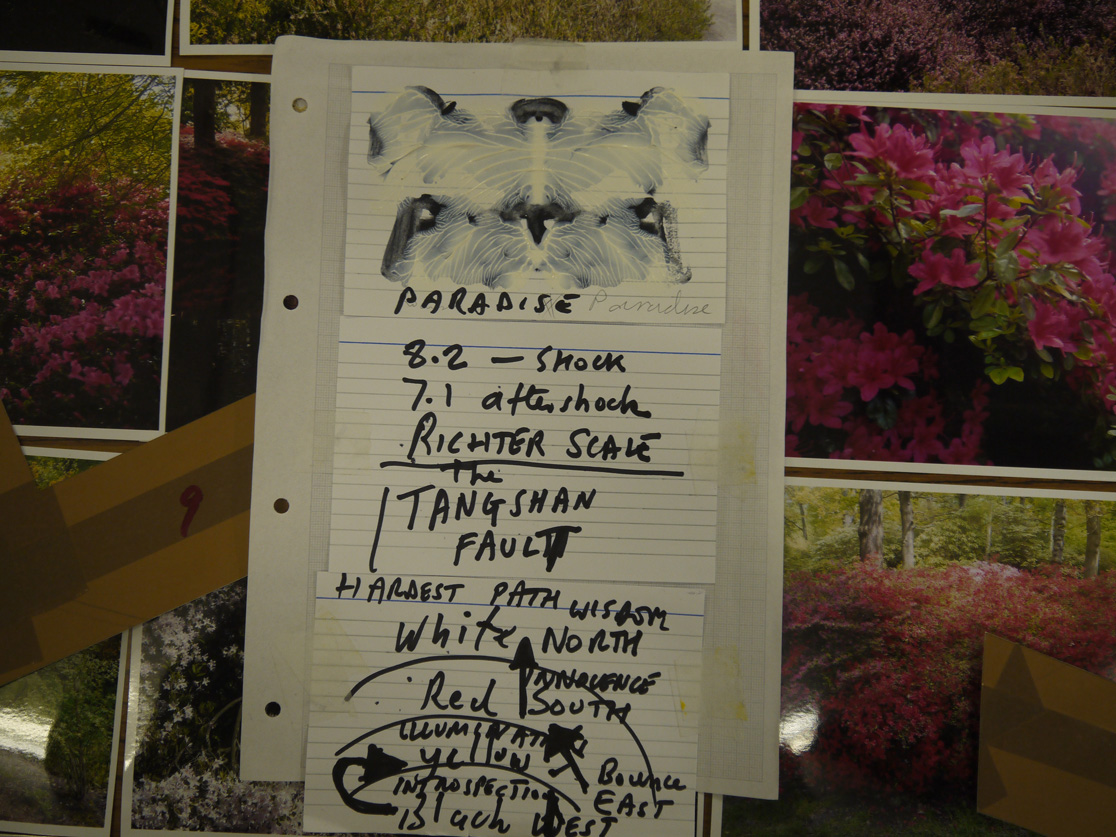 PARADISE Paradise
8.2 — SHOCK
7.1 aftershock
RICHTER SCALE
The
TANGSHAN
FAULT
9
HARDEST PATH WISDOM
White NORTH
INNOCENCE
Red SOUTH
ILLUMINATION
Yellow
BOUNCE
INTROSPECTION EAST
Black WEST